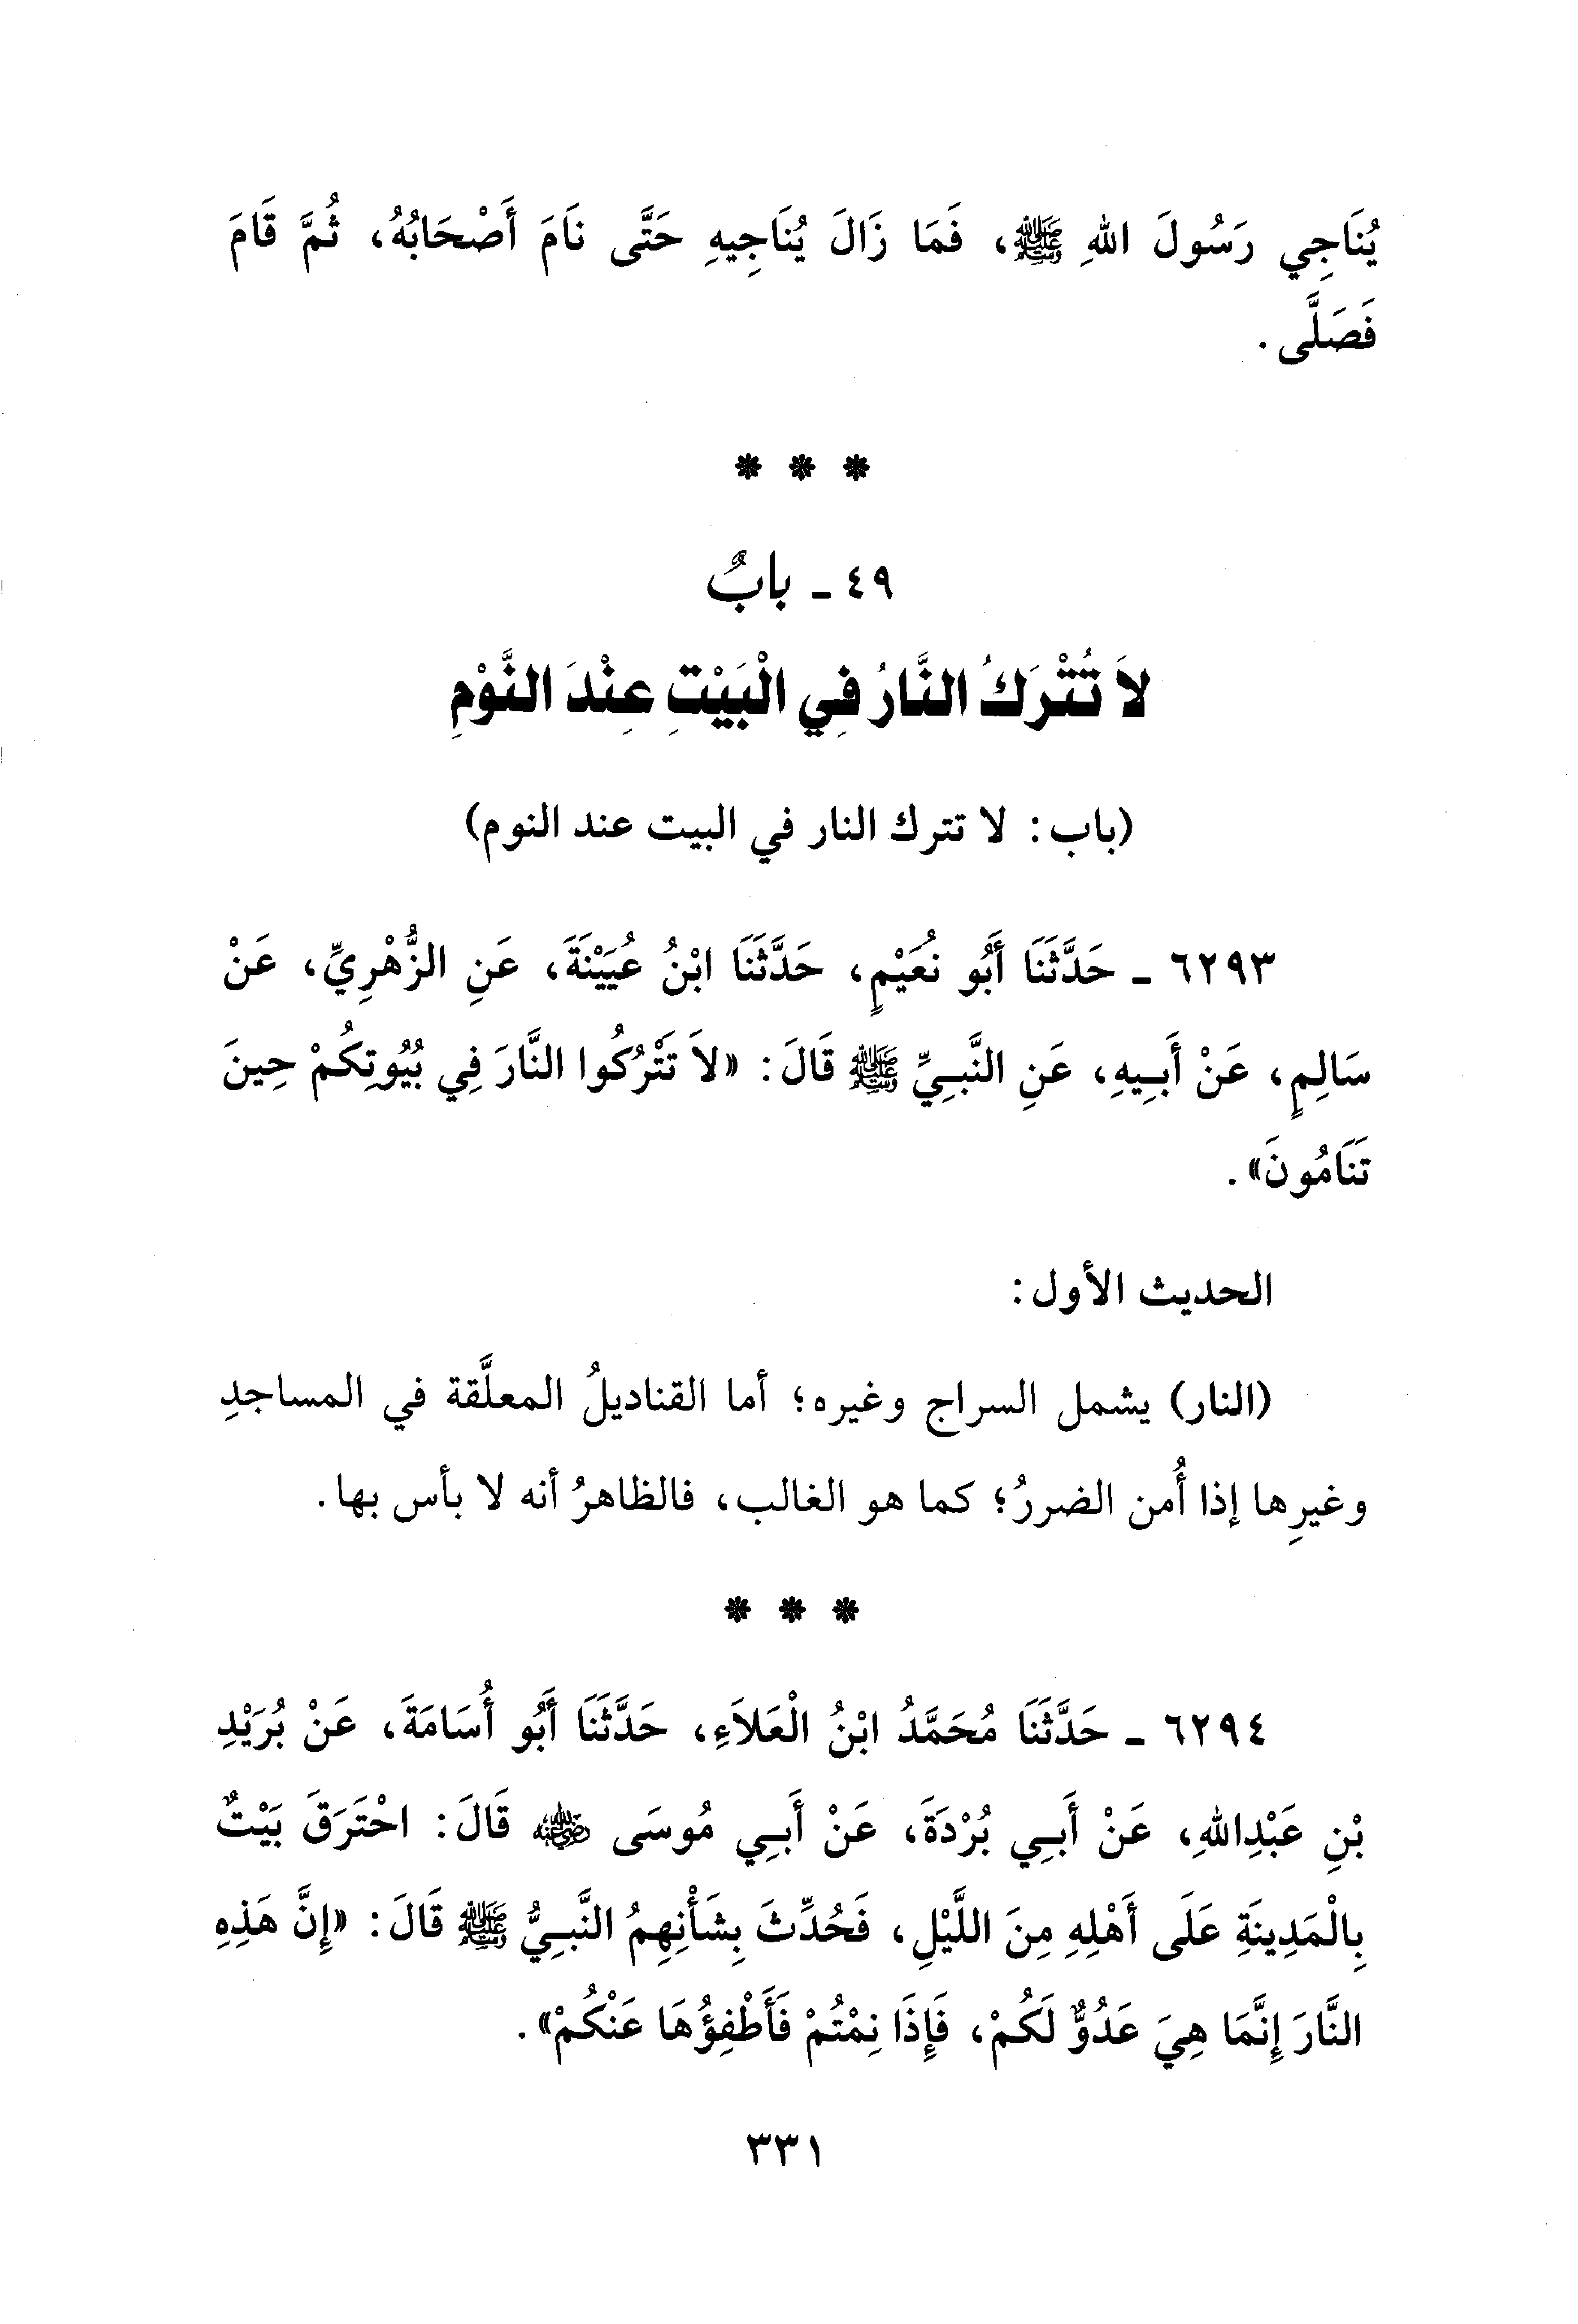 يُنَاجِي رَسُولَ اللهِ ﷺ، فَمَا زَالَ يُنَاجِيهِ حَتَّى نَامَ أَصْحَابُهُ، ثُمَّ قَامَ
فَصَلَّى.
* * *
٤٩ - بابٌ
لاَ تُتْرَكُ النَّارُ فِي الْبَيْتِ عِنْدَ النَّوْمِ
(باب: لا تترك النار في البيت عند النوم)
٦٢٩٣ - حَدَّثَنَا أَبُو نُعَيْمٍ، حَدَّثَنَا ابْنُ عُيَيْنَةَ، عَنِ الزُّهْرِيِّ، عَنْ
سَالِمٍ، عَنْ أَبِيهِ، عَنِ النَّبِيِّ ﷺ قَالَ: «لاَ تَتْرُكُوا النَّارَ فِي بُيُوتِكُمْ حِينَ
تَنَامُونَ».
الحديث الأول:
(النار) يشمل السراج وغيره؛ أما القناديلُ المعلَّقة في المساجدِ
وغيرِها إذا أُمن الضررُ؛ كما هو الغالب، فالظاهرُ أنه لا بأس بها.
* * *
٦٢٩٤ - حَدَّثَنَا مُحَمَّدُ ابْنُ الْعَلاَءِ، حَدَّثَنَا أَبُو أُسَامَةَ، عَنْ بُرَيْدِ
بْنِ عَبْدِاللهِ، عَنْ أَبِي بُرْدَةَ، عَنْ أَبِي مُوسَى رضي الله عنه قَالَ: احْتَرَقَ بَيْتٌ
بِالْمَدِينَةِ عَلَى أَهْلِهِ مِنَ اللَّيْلِ، فَحُدِّثَ بِشَأْنِهِمُ النَّبِيُّ ﷺ قَالَ: «إِنَّ هَذِهِ
النَّارَ إِنَّمَا هِيَ عَدُوٌّ لَكُمْ، فَإِذَا نِمْتُمْ فَأَطْفِؤُهَا عَنْكُمْ».
٣٣١